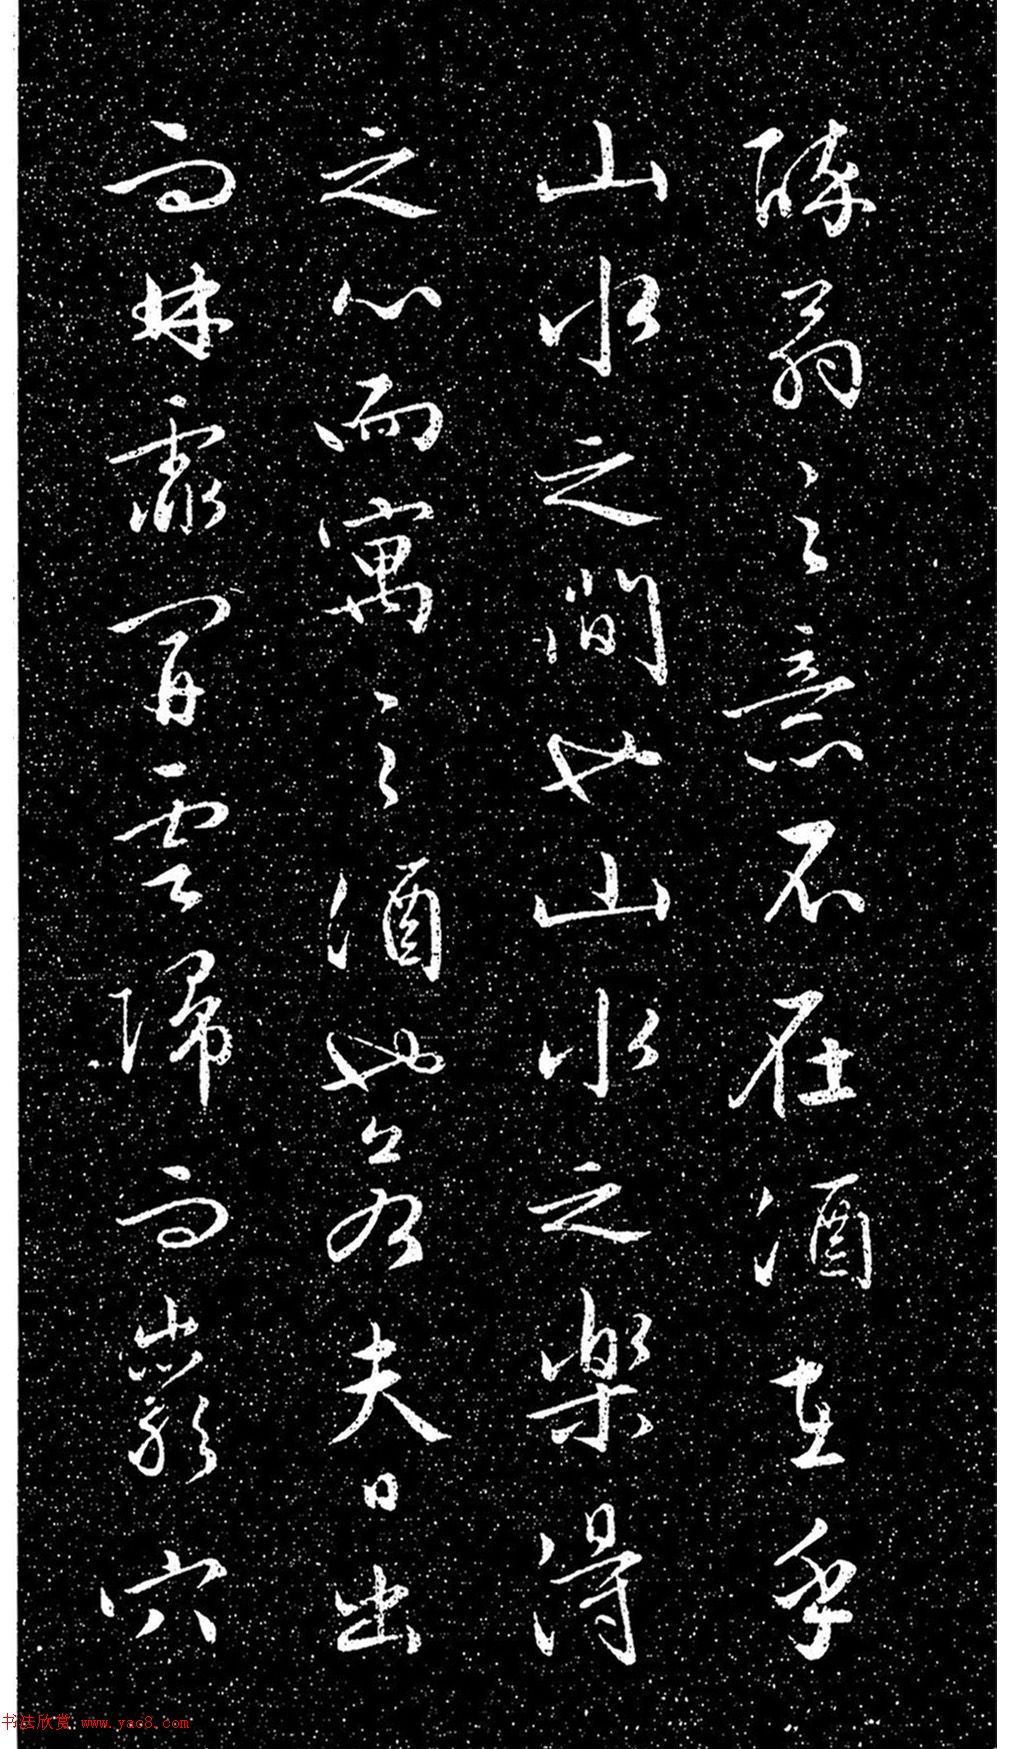 醉翁之意不在酒在乎
山水之間也山水之樂得
之心而寓之酒也若夫日出
而林霏開雲歸而巖穴
书法欣赏 www.yac8.com